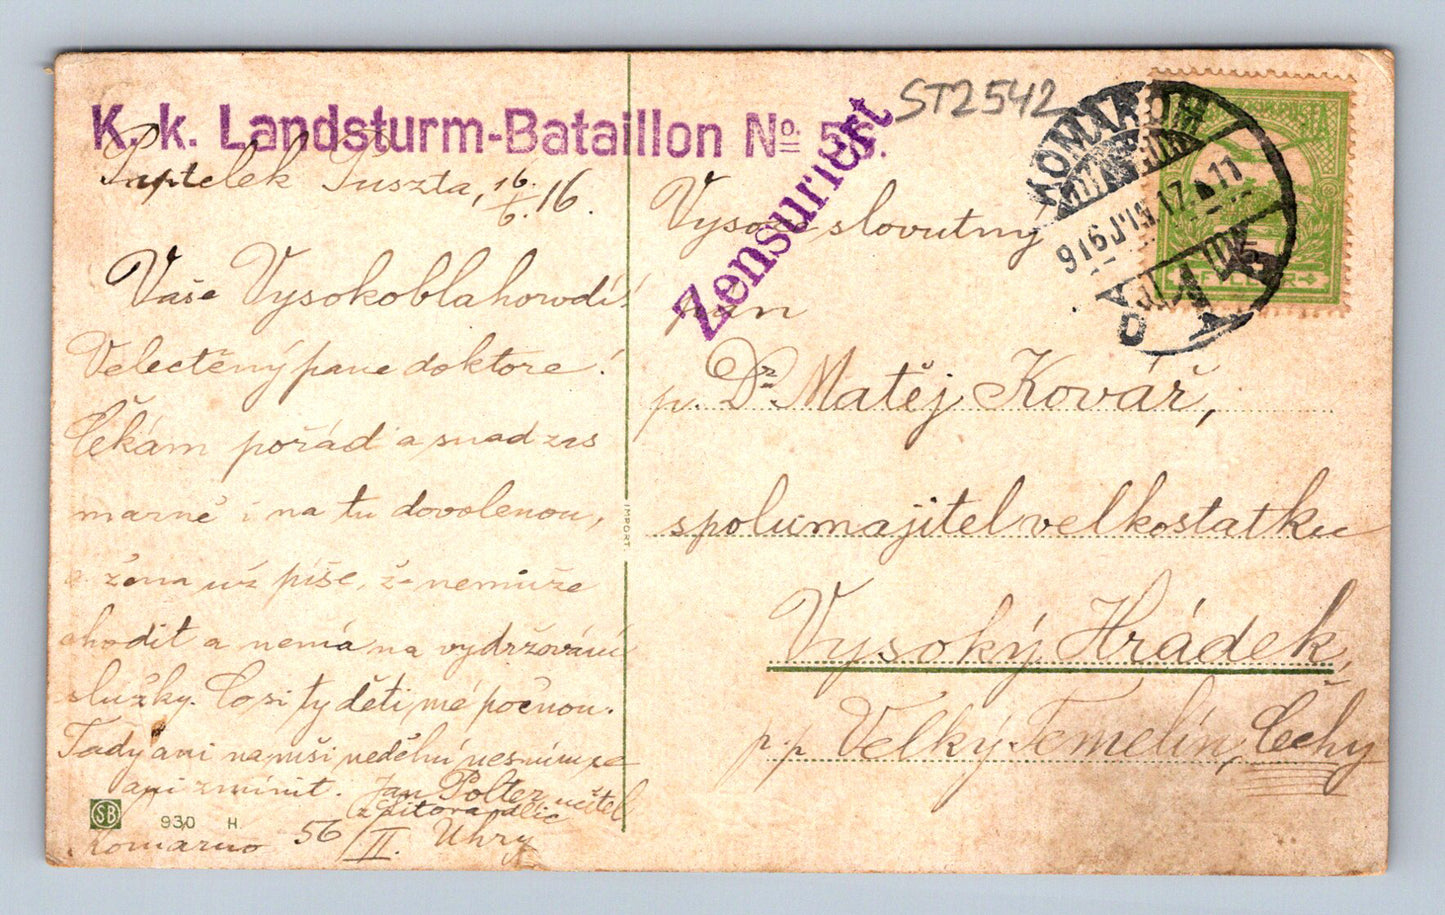 K. k. Landsturm-Bataillon No. 5
Zensuriert
ST2542
KOMÁROM
916 JUN 17
FILLÉR
Puszta, 16./6. 16.
Vaše Vysokoblahorodí!
Velectěný pane doktore!
Čekám pořád a snad zas
marně i na tu dovolenou,
a žena už píše, že nemůže
chodit a nemá na vydržování
služky. Co si ty děti mé počnou.
Tady ani na mši nedělní nesmím se
ani zmínit. Jan Polter, učitel
z
Komárno 56/II. Uhry
SB 930 H.
IMPORT
Vysoce slovutný
pán
p. Dr. Matěj Kovář,
spolumajitel velkostatku
Vysoký Hrádek,
p. p. Velký Temelín, Čechy